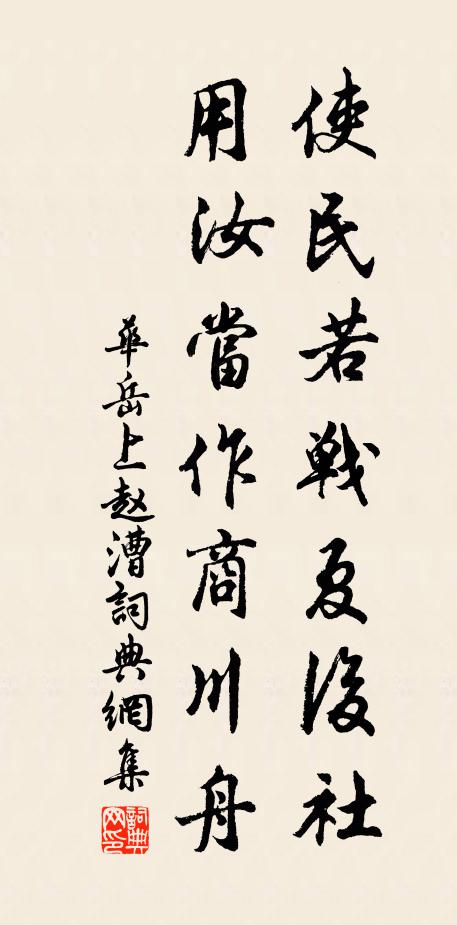 使民若戰夏後社
用汝當作商川舟
華岳上趙漕詞典網集
詞典网印